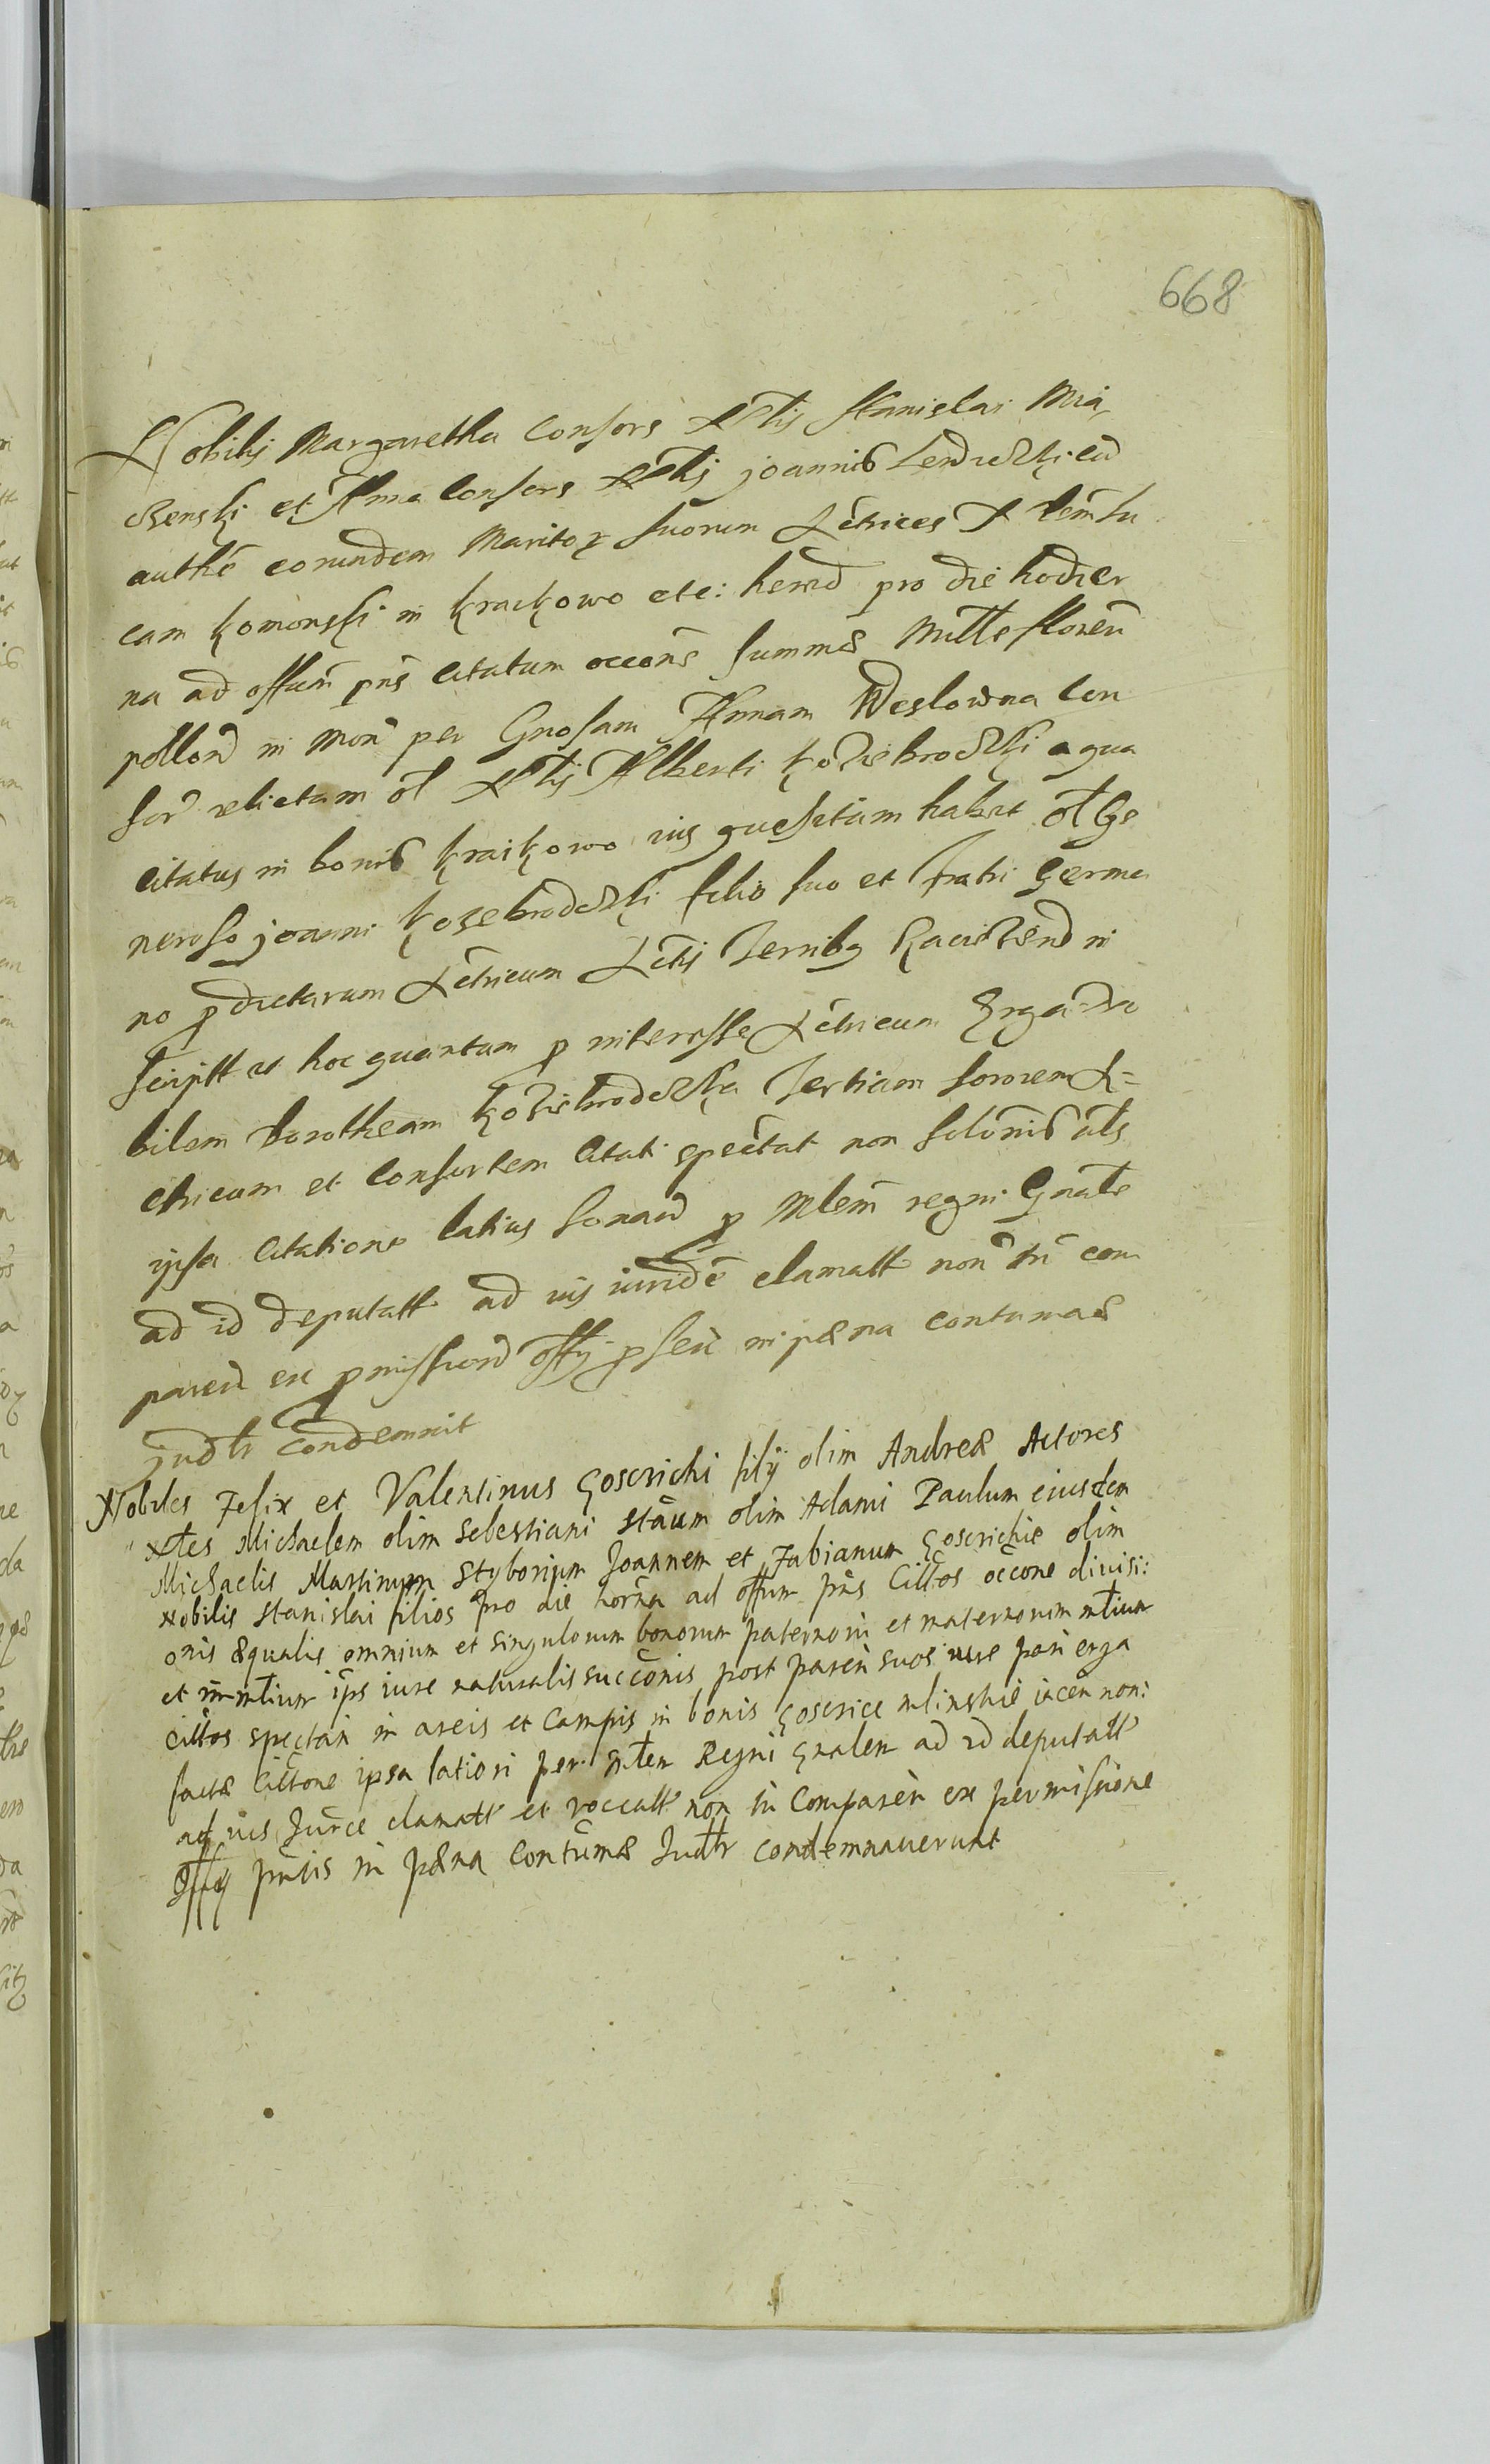 668
Nobilis Margaretha Consors Nbis Stanislai Mia
czenski et Anna Consors Nbis joannis cu
authe eorundem Maritor suorum Actrices
cam komonski in krackowo etc: hered pro die hodier
na ad offum pns citatum occone summae Mille floren
pollon in mon per Gnosam Annam Weslowna Con
sor relictam ol Nbis Alberti koziebrodzki a qua
Citatus in bonis kraikowo ius quesitum habet ol Ge
neroso joanni kozebrodzki filio suo et fratri Germa
no pdictarum Actricum Actis in
script et hoc quantum p interesse Actricum Erga
bilem Dorotheam koziebrodzka tertiam sororem A=
ctricum et Consortem Citati spectat non
ipsa Citatione latius sonand p Mlem regni Gnale
ad id deputatt ad ius iuridce clamatt non tn com
paren ex pmissione offy psen in paena contumae
judlr condemnit
Nobiles Felix et Valentinus Goscziczki filÿ olim Andreae Actores
Nbles Michaelem olim Sebestiani Staum olim Adami Paulum eiusdem
Michaelis Martinum Styborium Joannem et Fabianum Goscziczkie olim
Nobilis Stanislai filios pro die horna ad offum pns Cittos occone diuisi:
onis aequalis omnium et singulorum bonorum paternorum et maternorum mtium
et immtium ips iure naturalis succonis post paren suos iure pari erga
Cittos spectan in areis et Campis in bonis gosczice mlinskie iacen non:
factae Cittone ipsa latiori per Mlem Regni Gnalem ad id deputatt
ad ius Jurce clamatt et voccatt non tn Comparen ex permissione
Offy pntis in paena Contumae Judlr condemnauerunt